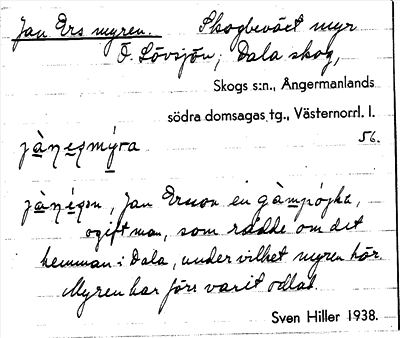 Jan Ers myren. Skogbeväxt myr
Ö. Lövsjön, Dala skog,
Skogs s:n., Ångermanlands
södra domsagas tg., Västernorrl. l.
56.
jàneṣmýra
Jan Ersson en
ogift man, som rådde om det
hemman i Dala, under vilket myren hör.
Myren har förr varit odlad.
Sven Hiller 1938.